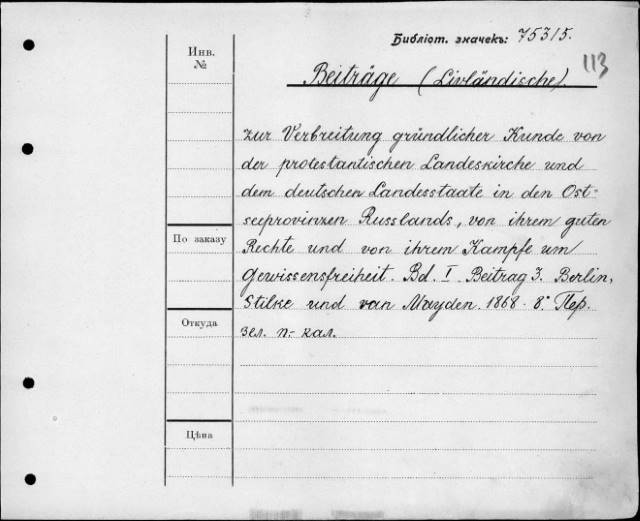 Библіот. значекъ: 75315.
113
Инв.
№
Beiträge (Livländische).
zur Verbreitung gründlicher Kunde von
der protestantischen Landeskirche und
dem deutschen Landesstaate in den Ost-
seeprovinzen Russlands, von ihrem guten
По заказу
Rechte und von ihrem Kampfe um
Gewissensfreiheit. Bd. I. Beitrag 3. Berlin,
Stilke und van Mayden. 1868. 8°. Пер.
Откуда
зел. п.-кал.
Цѣна